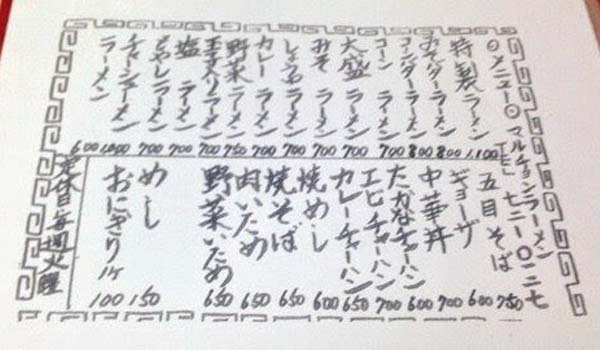 ○メニュー○ マルチョンラーメン
TEL 七二ー〇二二七
特製ラーメン 1,100
みそバターラーメン 800
コーンバターラーメン 800
コーンラーメン 700
大盛ラーメン 700
みそラーメン 700
しょうゆラーメン 700
カレーラーメン 700
野菜ラーメン 750
玉子入りラーメン 700
塩ラーメン 700
もやしラーメン 700
チャーシューメン 1,000
ラーメン 600
五目そば 750
ギョーザ 600
中華丼 700
たかなチャーハン 600
エビチャーハン 700
カレーチャーハン 650
焼めし 600
焼そば 650
肉いため 650
野菜いため 650
めし 150
おにぎり1ケ 100
定休日毎週火曜